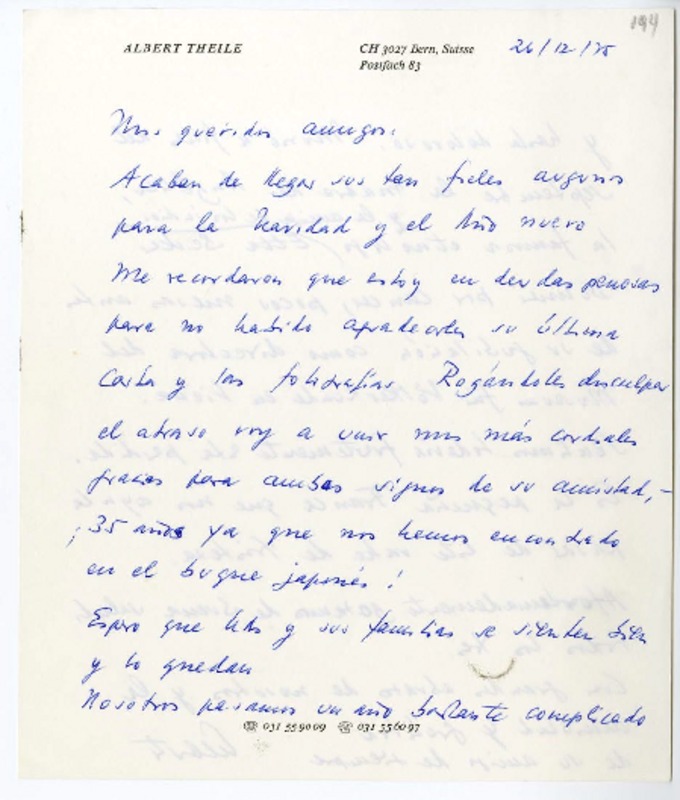 194
ALBERT THEILE
CH 3027 Bern, Suisse
Postfach 83
26/12/75
Mis queridos amigos:
Acaban de llegar sus tan fieles augurios
para la Navidad y el Año nuevo
Me recordaron que estoy en deudas penosas
para no habido agradecerles su última
carta y las fotografías. Rogándoles disculpar
el atraso voy a unir mis más cordiales
gracias para ambos signos de su amistad, –
¡35 años ya que nos hemos encontrado
en el buque japonés!
Espero que Uds y sus familias se sienten bien
y lo quedan
Nosotros pasamos un año bastante complicado
031 559009 031 556097